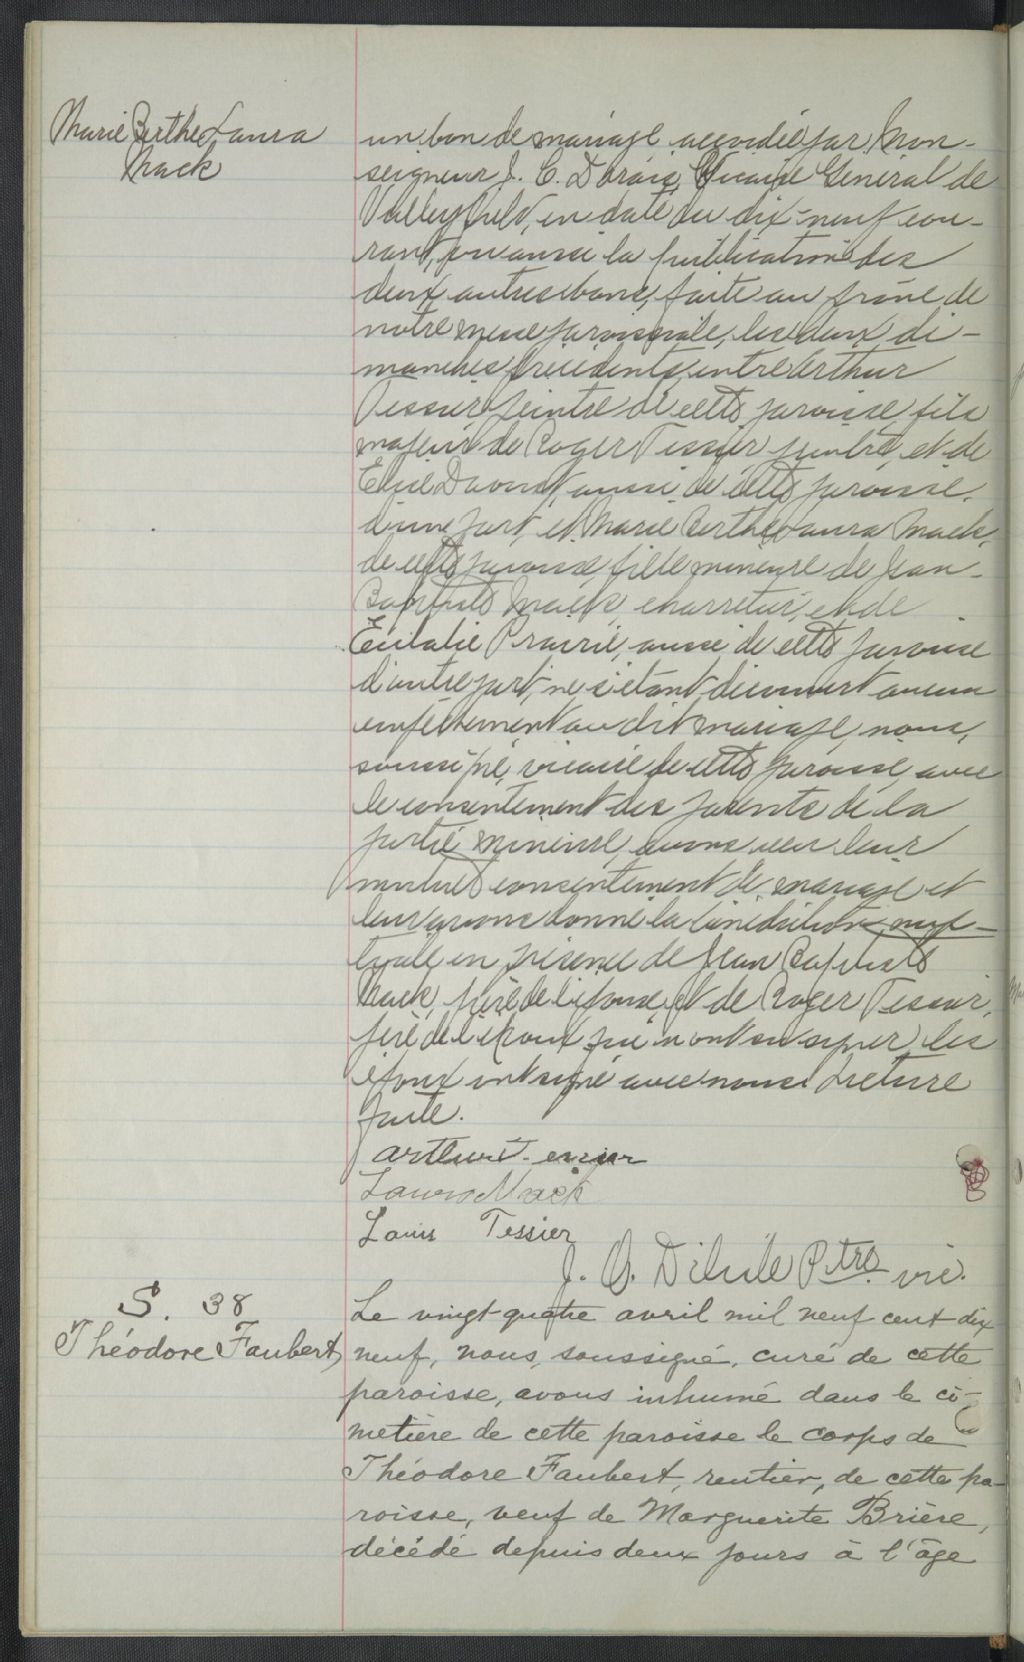 Marie Berthe Laura
Mack
un ban de mariage accordée par Mon-
seigneur J. C. Dorais, Vicaire Général de
Valleyfield, en date du dix-neuf cou-
rant, vu aussi la publication des
deux autres bans, faite au prône de
notre messe paroissiale, les deux di-
manches précédents, entre Arthur
Tessier peintre de cette paroisse, fils
majeur de Roger Tessier peintre, et de
Elise Daoust, aussi de cette paroisse,
d'une part, et Marie Berthe Laura Mack,
de cette paroisse, fille mineure de Jean-
Baptiste Mack, charretier, et de
Eulalie Prairie, aussi de cette paroisse
d'autre part, ne s'étant découvert aucun
empêchement au dit mariage, nous,
soussigné, vicaire de cette paroisse, avec
le consentement des parents de la
partie mineure, avons reçu leur
mutuel consentement de mariage et
leur avons donné la bénédiction nup-
tiale en présence de Jean Baptiste
Mack, père de l'épouse, et de Roger Tessier,
père de l'époux qui n'ont su signer, les
époux ont signé avec nous. Lecture
faite.
Arthur Tessier
Laura Mack
Louis Tessier
J. Ptre vic.
S. 38
Théodore Faubert
Le vingt-quatre avril mil neuf cent dix
neuf, nous, soussigné, curé de cette
paroisse, avons inhumé dans le ci-
metière de cette paroisse le corps de
Théodore Faubert, rentier, de cette pa-
roisse, veuf de Marguerite Brière,
décédé depuis deux jours à l'âge